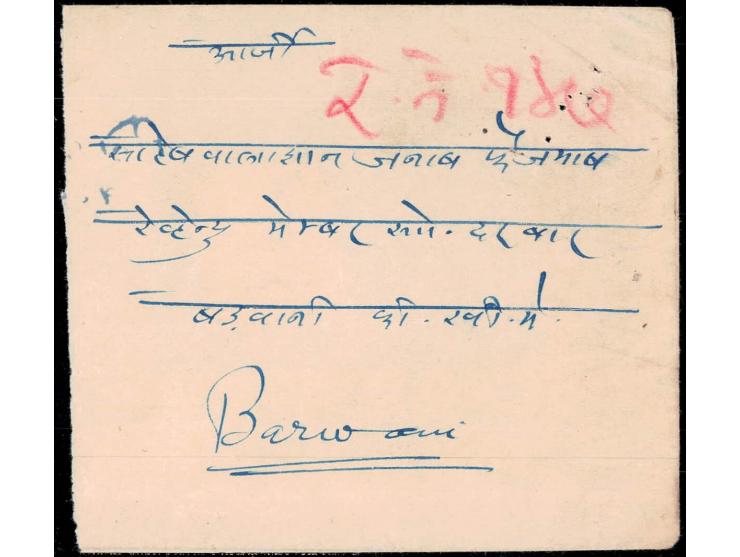 आर्जी
र. नं १४७
साहेब वालाशान जनाब फैजमाब
रेव्हेन्यु मेम्बर सा॰ दरबार
बड़वानी की. स्वी. में.
Barwani